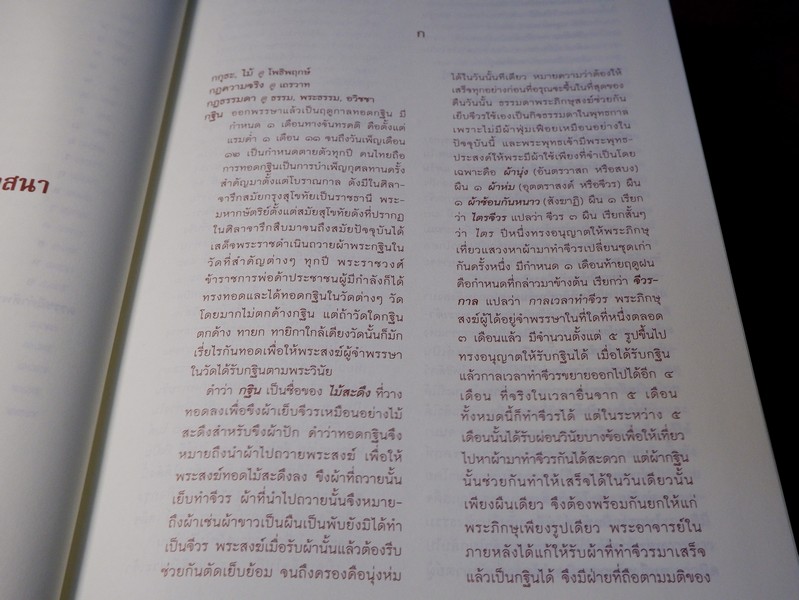 สนา
ก
กกุธะ, ไม้ ดู โพธิพฤกษ์
กฎความจริง ดู เถรวาท
กฎธรรมดา ดู ธรรม, พระธรรม, อวิชชา
กฐิน ออกพรรษาแล้วเป็นฤดูกาลทอดกฐิน มี
กำหนด ๑ เดือนทางจันทรคติ คือตั้งแต่
แรมค่ำ ๑ เดือน ๑๑ จนถึงวันเพ็ญเดือน
๑๒ เป็นกำหนดตายตัวทุกปี คนไทยถือ
การทอดกฐินเป็นการบำเพ็ญกุศลทานครั้ง
สำคัญมาตั้งแต่โบราณกาล ดังมีในศิลา-
จารึกสมัยกรุงสุโขทัยเป็นราชธานี พระ-
มหากษัตริย์ตั้งแต่สมัยสุโขทัยดังที่ปรากฏ
ในศิลาจารึกสืบมาจนถึงสมัยปัจจุบันได้
เสด็จพระราชดำเนินถวายผ้าพระกฐินใน
วัดที่สำคัญต่างๆ ทุกปี พระราชวงศ์
ข้าราชการพ่อค้าประชาชนผู้มีกำลังก็ได้
ทรงทอดและได้ทอดกฐินในวัดต่างๆ วัด
โดยมากไม่ตกค้างกฐิน แต่ถ้าวัดใดกฐิน
ตกค้าง ทายก ทายิกาใกล้เคียงวัดนั้นก็มัก
เรี่ยไรกันทอดเพื่อให้พระสงฆ์ผู้จำพรรษา
ในวัดได้รับกฐินตามพระวินัย
คำว่า กฐิน เป็นชื่อของ ไม้สะดึง ที่วาง
ทอดลงเพื่อขึงผ้าเย็บจีวรเหมือนอย่างไม้
สะดึงสำหรับขึงผ้าปัก คำว่าทอดกฐินจึง
หมายถึงนำผ้าไปถวายพระสงฆ์ เพื่อให้
พระสงฆ์ทอดไม้สะดึงลง ขึงผ้าที่ถวายนั้น
เย็บทำจีวร ผ้าที่นำไปถวายนั้นจึงหมาย-
ถึงผ้าเช่นผ้าขาวเป็นผืนเป็นพับยังมิได้ทำ
เป็นจีวร พระสงฆ์เมื่อรับผ้านั้นแล้วต้องรีบ
ช่วยกันตัดเย็บย้อม จนถึงครองคือนุ่งห่ม
ได้ในวันนั้นทีเดียว หมายความว่าต้องให้
เสร็จทุกอย่างก่อนที่อรุณจะขึ้นในที่สุดของ
คืนวันนั้น ธรรมดาพระภิกษุสงฆ์ช่วยกัน
เย็บจีวรใช้เองเป็นกิจธรรมดาในพุทธกาล
เพราะไม่มีผ้าฟุ่มเฟือยเหมือนอย่างใน
ปัจจุบันนี้ และพระพุทธเจ้ามีพระพุทธ-
ประสงค์ให้พระมีผ้าใช้เพียงที่จำเป็นโดย
เฉพาะคือ ผ้านุ่ง (อันตรวาสก หรือสบง)
ผืน ๑ ผ้าห่ม (อุตตราสงค์ หรือจีวร) ผืน
๑ ผ้าซ้อนกันหนาว (สังฆาฏิ) ผืน ๑ เรียก
ว่า ไตรจีวร แปลว่า จีวร ๓ ผืน เรียกสั้นๆ
ว่า ไตร ปีหนึ่งทรงอนุญาตให้พระภิกษุ
เที่ยวแสวงหาผ้ามาทำจีวรเปลี่ยนชุดเก่า
กันครั้งหนึ่ง มีกำหนด ๑ เดือนท้ายฤดูฝน
คือกำหนดที่กล่าวมาข้างต้น เรียกว่า จีวร-
กาล แปลว่า กาลเวลาทำจีวร พระภิกษุ
สงฆ์ผู้ได้อยู่จำพรรษาในที่ใดที่หนึ่งตลอด
๓ เดือนแล้ว มีจำนวนตั้งแต่ ๕ รูปขึ้นไป
ทรงอนุญาตให้รับกฐินได้ เมื่อได้รับกฐิน
แล้วกาลเวลาทำจีวรขยายออกไปได้อีก ๔
เดือน ที่จริงในเวลาอื่นจาก ๕ เดือน
ทั้งหมดนี้ก็ทำจีวรได้ แต่ในระหว่าง ๕
เดือนนั้นได้รับผ่อนวินัยบางข้อเพื่อให้เที่ยว
ไปหาผ้ามาทำจีวรกันได้สะดวก แต่ผ้ากฐิน
นั้นช่วยกันทำให้เสร็จได้ในวันเดียวนั้น
เพียงผืนเดียว จึงต้องพร้อมกันยกให้แก่
พระภิกษุเพียงรูปเดียว พระอาจารย์ใน
ภายหลังได้แก้ให้รับผ้าที่ทำจีวรมาเสร็จ
แล้วเป็นกฐินได้ จึงมีฝ่ายที่ถือตามมติของ